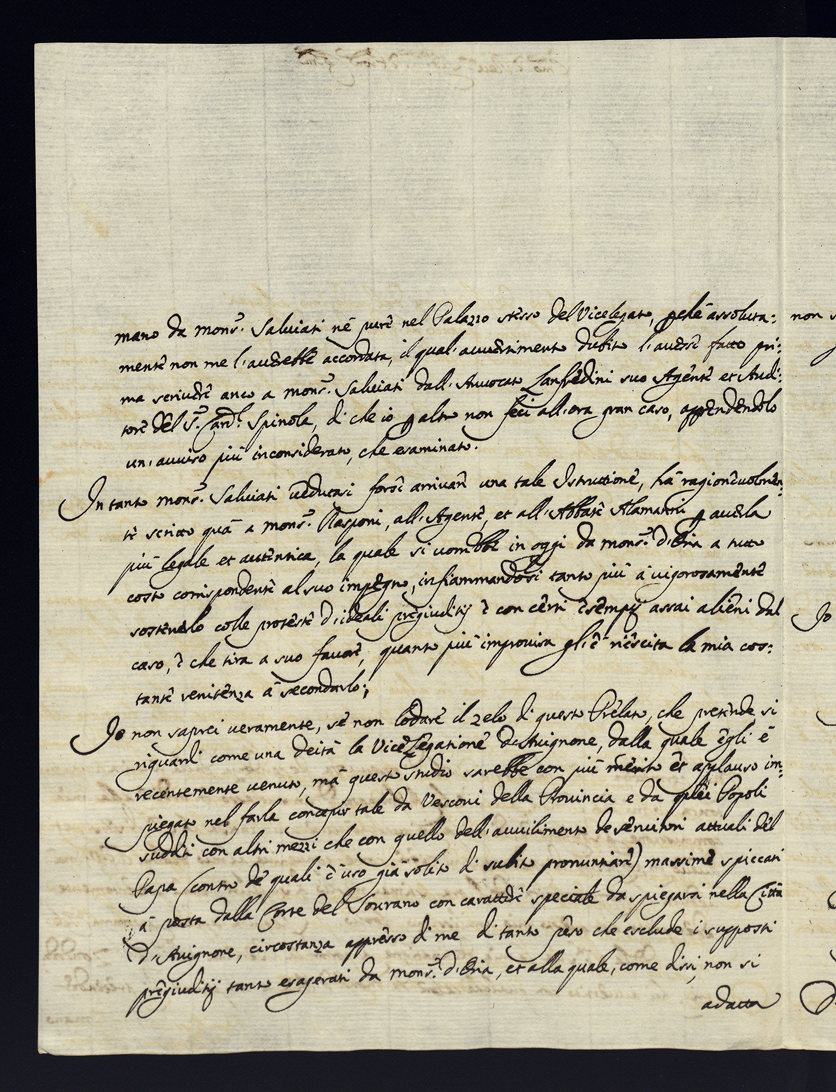 mano da mons.r Salviati né pure nel Palazzo stesso del Vicelegato, p.chè assoluta=
mente non me l'averebbe accordata, il qual'avvertimento dubito l'avesse fatto pri=
ma scrivere anco a mons.r Salviati dall'Avvocat Lanfredini suo Agente et Audi=
tore del S.r Card.l Spinola, di che io p altro non feci all'ora gran caso, apprendendolo
un'avviso più inconsiderato, che esaminato.
In tanto mons.r Salviati vedutasi forsi arrivar una tale Istruttione, hà ragionevolmen=
te scritto quà a mons.r Rasponi, all'Agente, et all'Abbate Alamanni p averla
più legale et autentica, la quale si vorrebbe in oggi da mons.r d'Elia a tutto
costo corrispondente al suo impegno, infiammandosi tanto più à vigorosamente
sostenerlo colle proteste d'ideali pregiuditij e con certi esempij assai alieni dal
caso, e che tira a suo favore, quanto più improvisa gli è riescita la mia cos=
tante renitenza à secondarlo;
Io non saprei veramente, se non lodare il zelo di questo Prelato, che pretende si
riguardi come una deità la Vice Legatione d'Avignone, dalla quale egli è
recentemente venuto, mà questo studio sarebbe con più merito et applauso im=
piegato nel farla concepir tale da Vescovi della Provincia e da quei Popoli
sudditi con altri mezzi che con quello dell'avvilimento de servitori attuali del
Papa (contro de quali è uso già solito di subito pronuntiare) massime spiccati
à posta dalla Corte del Sovrano con carattere speciale da spiegarsi nella Città
d'Avignone, circostanza appresso di me di tanto peso che esclude i supposti
pregiuditij tanto esagerati da mons.r d'Elia, et alla quale, come dissi, non si
adatta
non s
Io